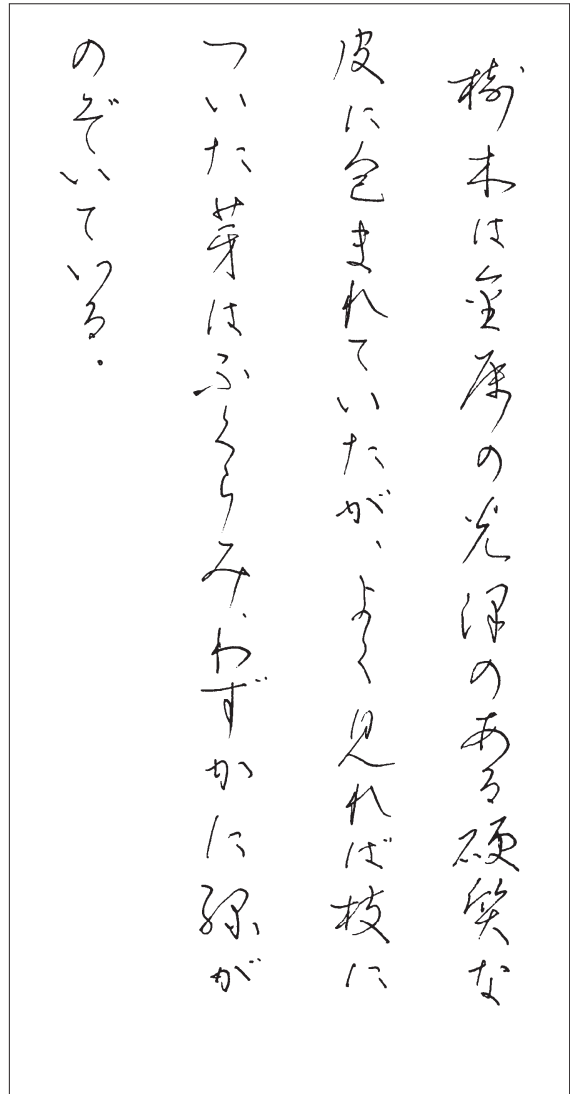 樹木は金属の光沢のある硬質な
皮に包まれていたが、よく見れば枝に
ついた芽はふくらみ、わずかに緑が
のぞいている。